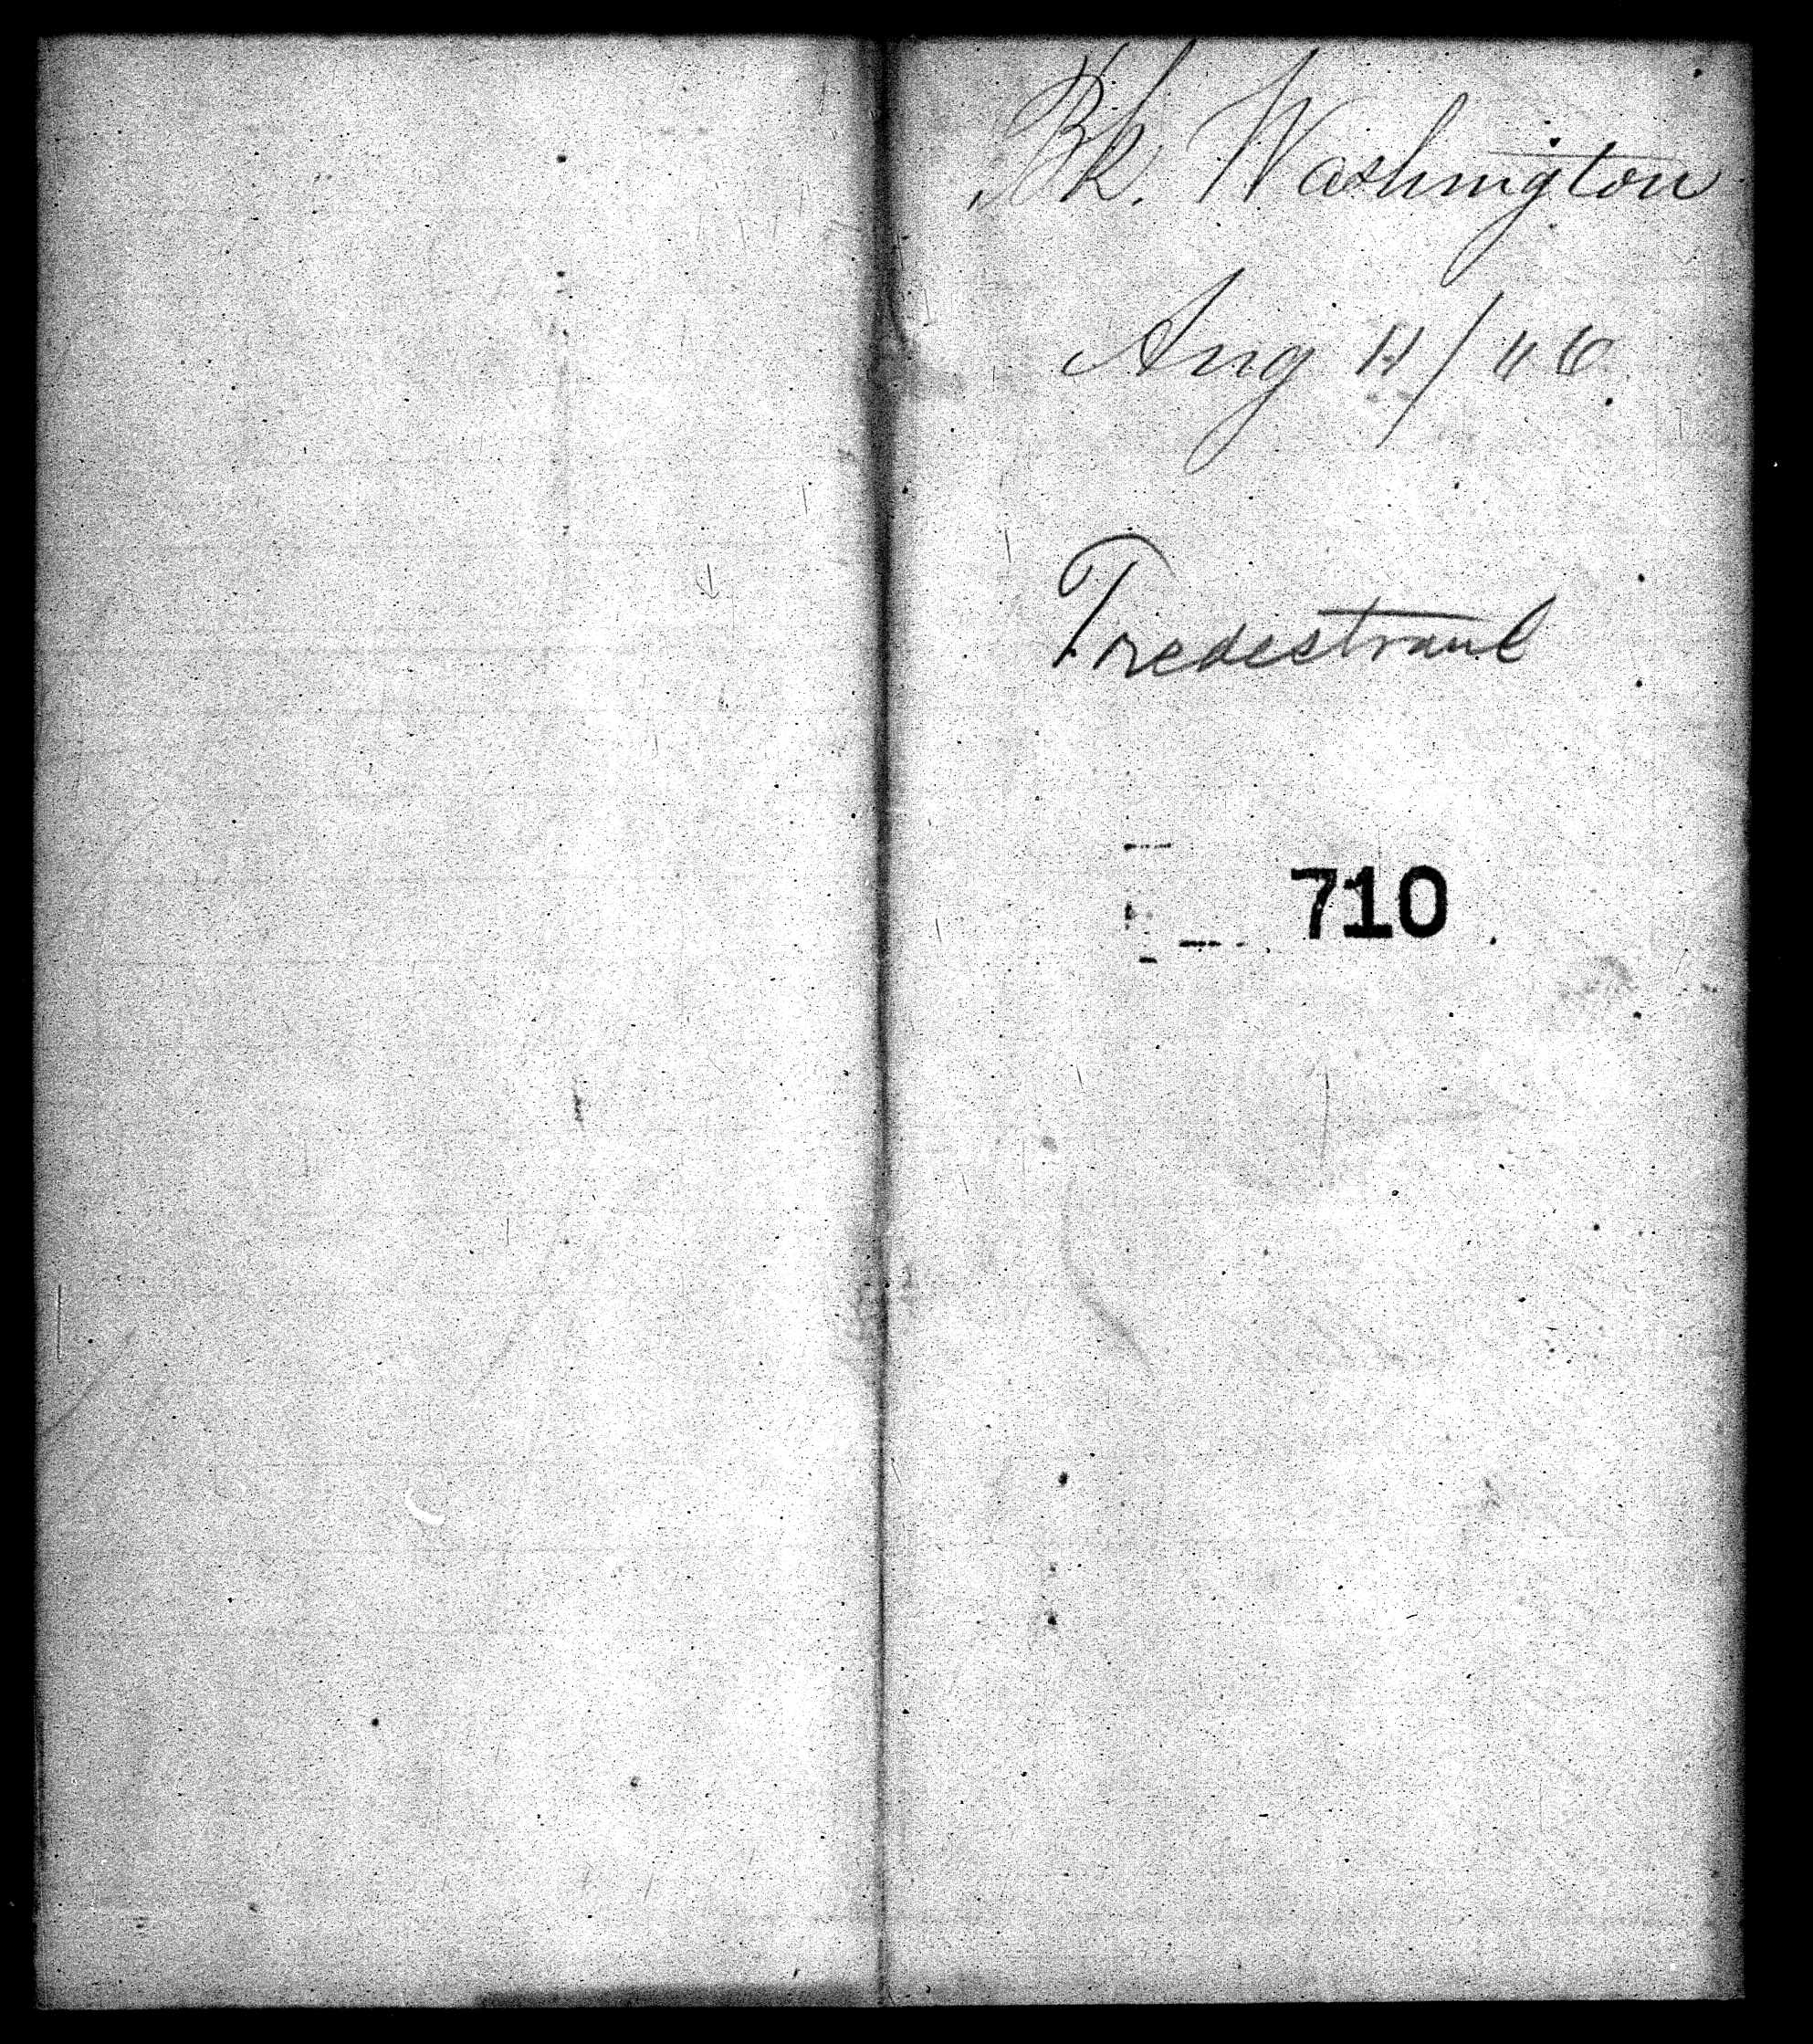 Bk. Washington
Aug 4/46
Fredestraul
710